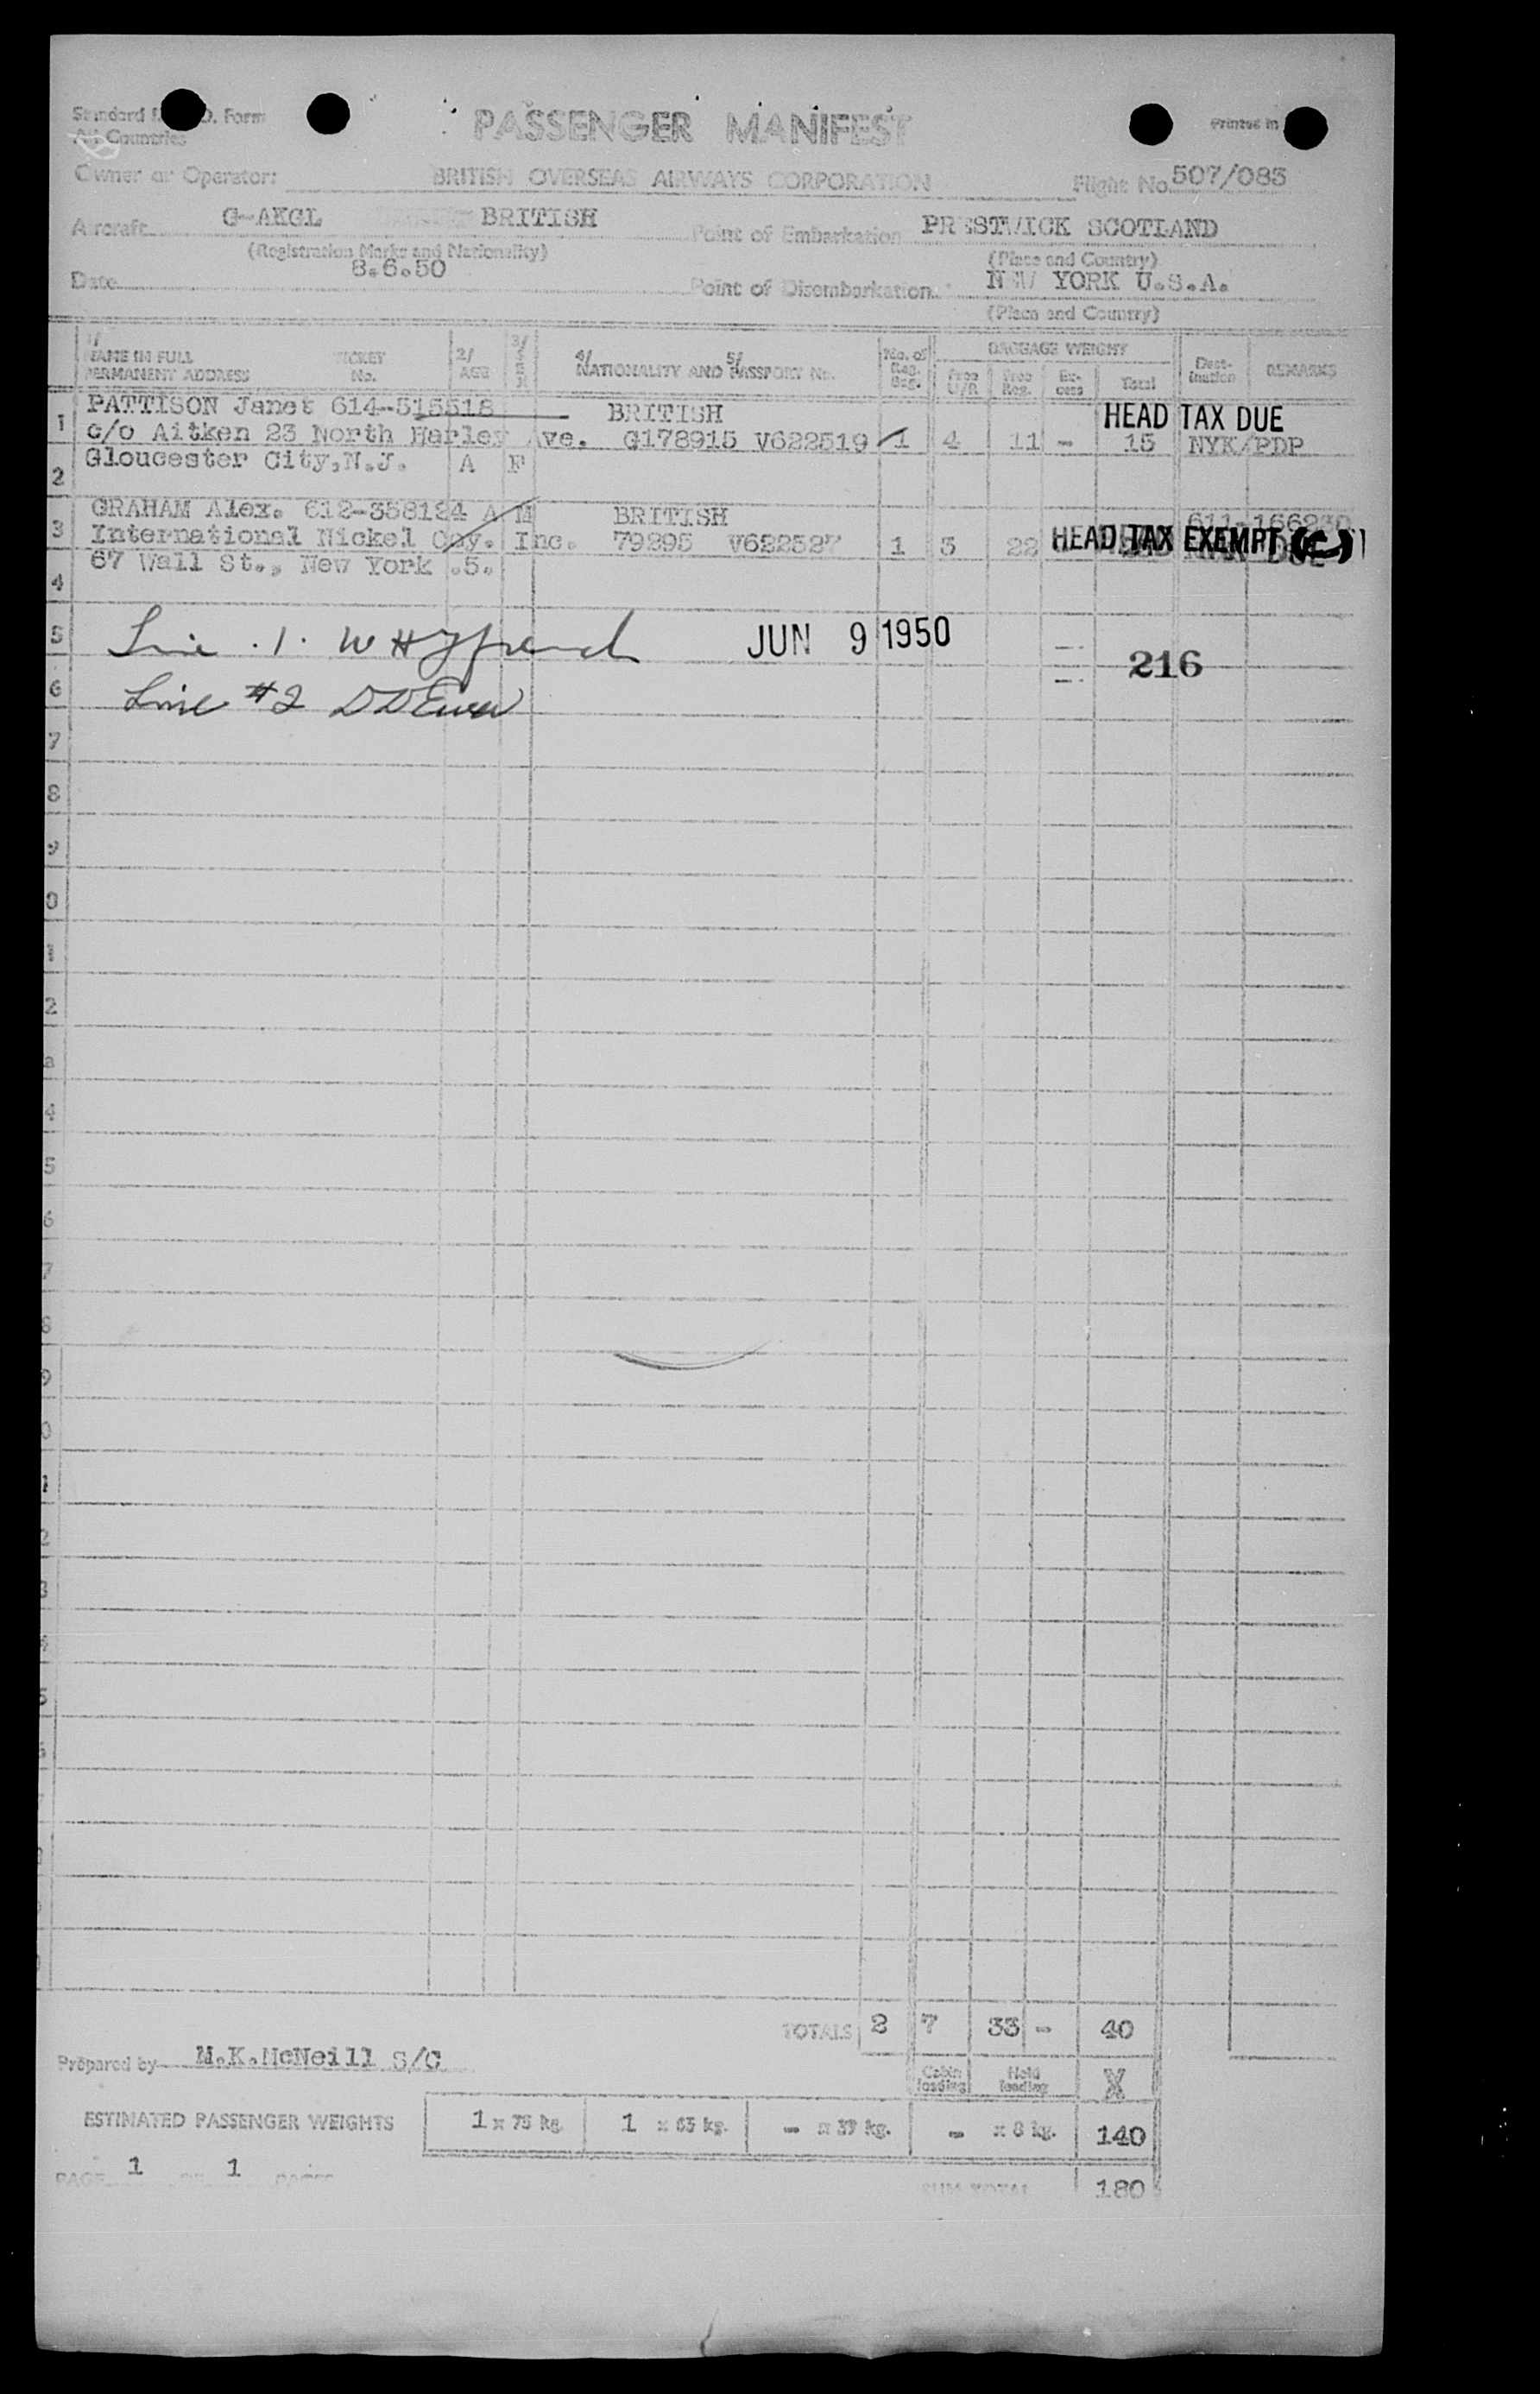 PASSENGER MANIFEST
Standard Form
All Countries
Printed in
Owner or Operator: BRITISH OVERSEAS AIRWAYS CORPORATION Flight No. 507/083
Aircraft G-AKGL BRITISH Point of Embarkation PRESTWICK SCOTLAND
(Registration Marks and Nationality) (Place and Country)
Date 8.6.50 Point of Disembarkation NEW YORK U.S.A.
(Place and Country)
1/ NAME IN FULL PERMANENT ADDRESS TICKET No. 2/ AGE 3/ SEX 4/ 5/ NATIONALITY AND PASSPORT No. No. of Reg. Bag. BAGGAGE WEIGHT Free Reg. Excess Total Destination REMARKS
PATTISON Janet 614-515518 BRITISH HEAD TAX DUE
1 c/o Aitken 23 North Harley Ave. G178915 V622519 1 4 11 - 15 NYK/PDP
Gloucester City,N.J. A F
2
GRAHAM Alex. 612-358124 A M BRITISH
3 International Nickel Coy. Inc. 79295 V622527 1 3 22 HEAD TAX EXEMPT (C)
67 Wall St., New York .5.
4
5 Line . 1. JUN 9 1950
216
6 Line #2
7
8
9
0
1
2
3
4
5
6
7
8
9
0
1
2
3
4
5
TOTALS 2 7 33 - 40
Prepared by M.K.McNeill S/C
Cabin loading Hold loading X
ESTIMATED PASSENGER WEIGHTS 1 x 75 kg. 1 x 65 kg. - x 39 kg. - x 8 kg. 140
PAGE 1 OF 1 PAGES
SUM TOTAL 180